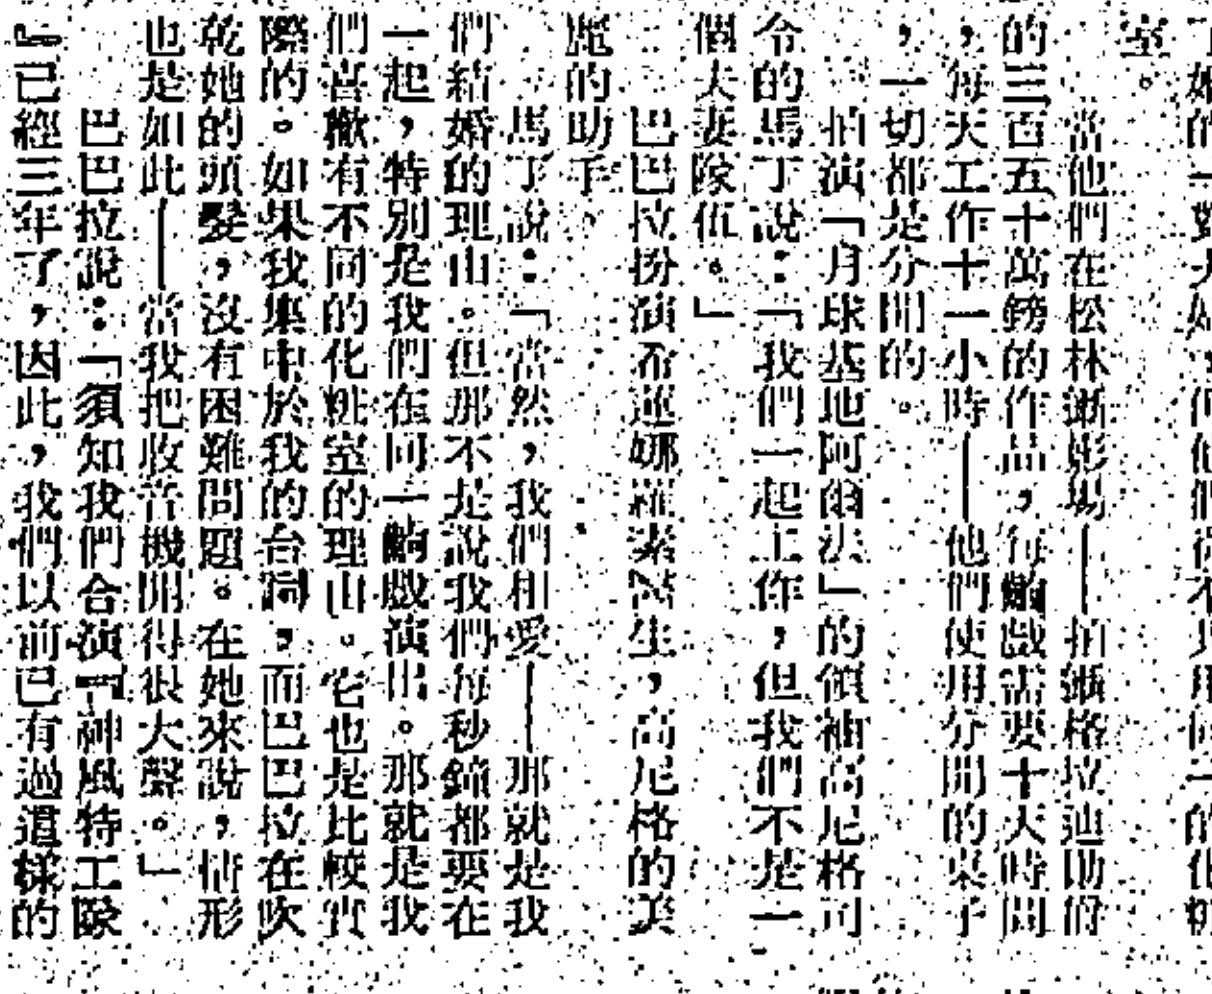 室。
當他們在松林攝影場——拍攝格拉迪勛爵
的三百五十萬鎊的作品,每齣戲需要十天時間
,每天工作十一小時——他們使用分開的桌子
,一切都是分開的。
拍演「月球基地阿爾法」的領袖高尼格司
令的馬丁說:「我們一起工作,但我們不是一
個夫妻隊伍。」
巴巴拉扮演希蓮娜羅素醫生,高尼格的美
麗的助手。
馬丁說:「當然,我們相愛——那就是我
們結婚的理由。但那不是說我們每秒鐘都要在
一起,特別是我們在同一齣戲演出。那就是我
們喜歡有不同的化粧室的理由。它也是比較實
際的。如果我集中於我的台詞,而巴巴拉在吹
乾她的頭髮,沒有困難問題。在她來說,情形
也是如此——當我把收音機開得很大聲。」
巴巴拉說:「須知我們合演『神風特工隊
』已經三年了,因此,我們以前已有過這樣的